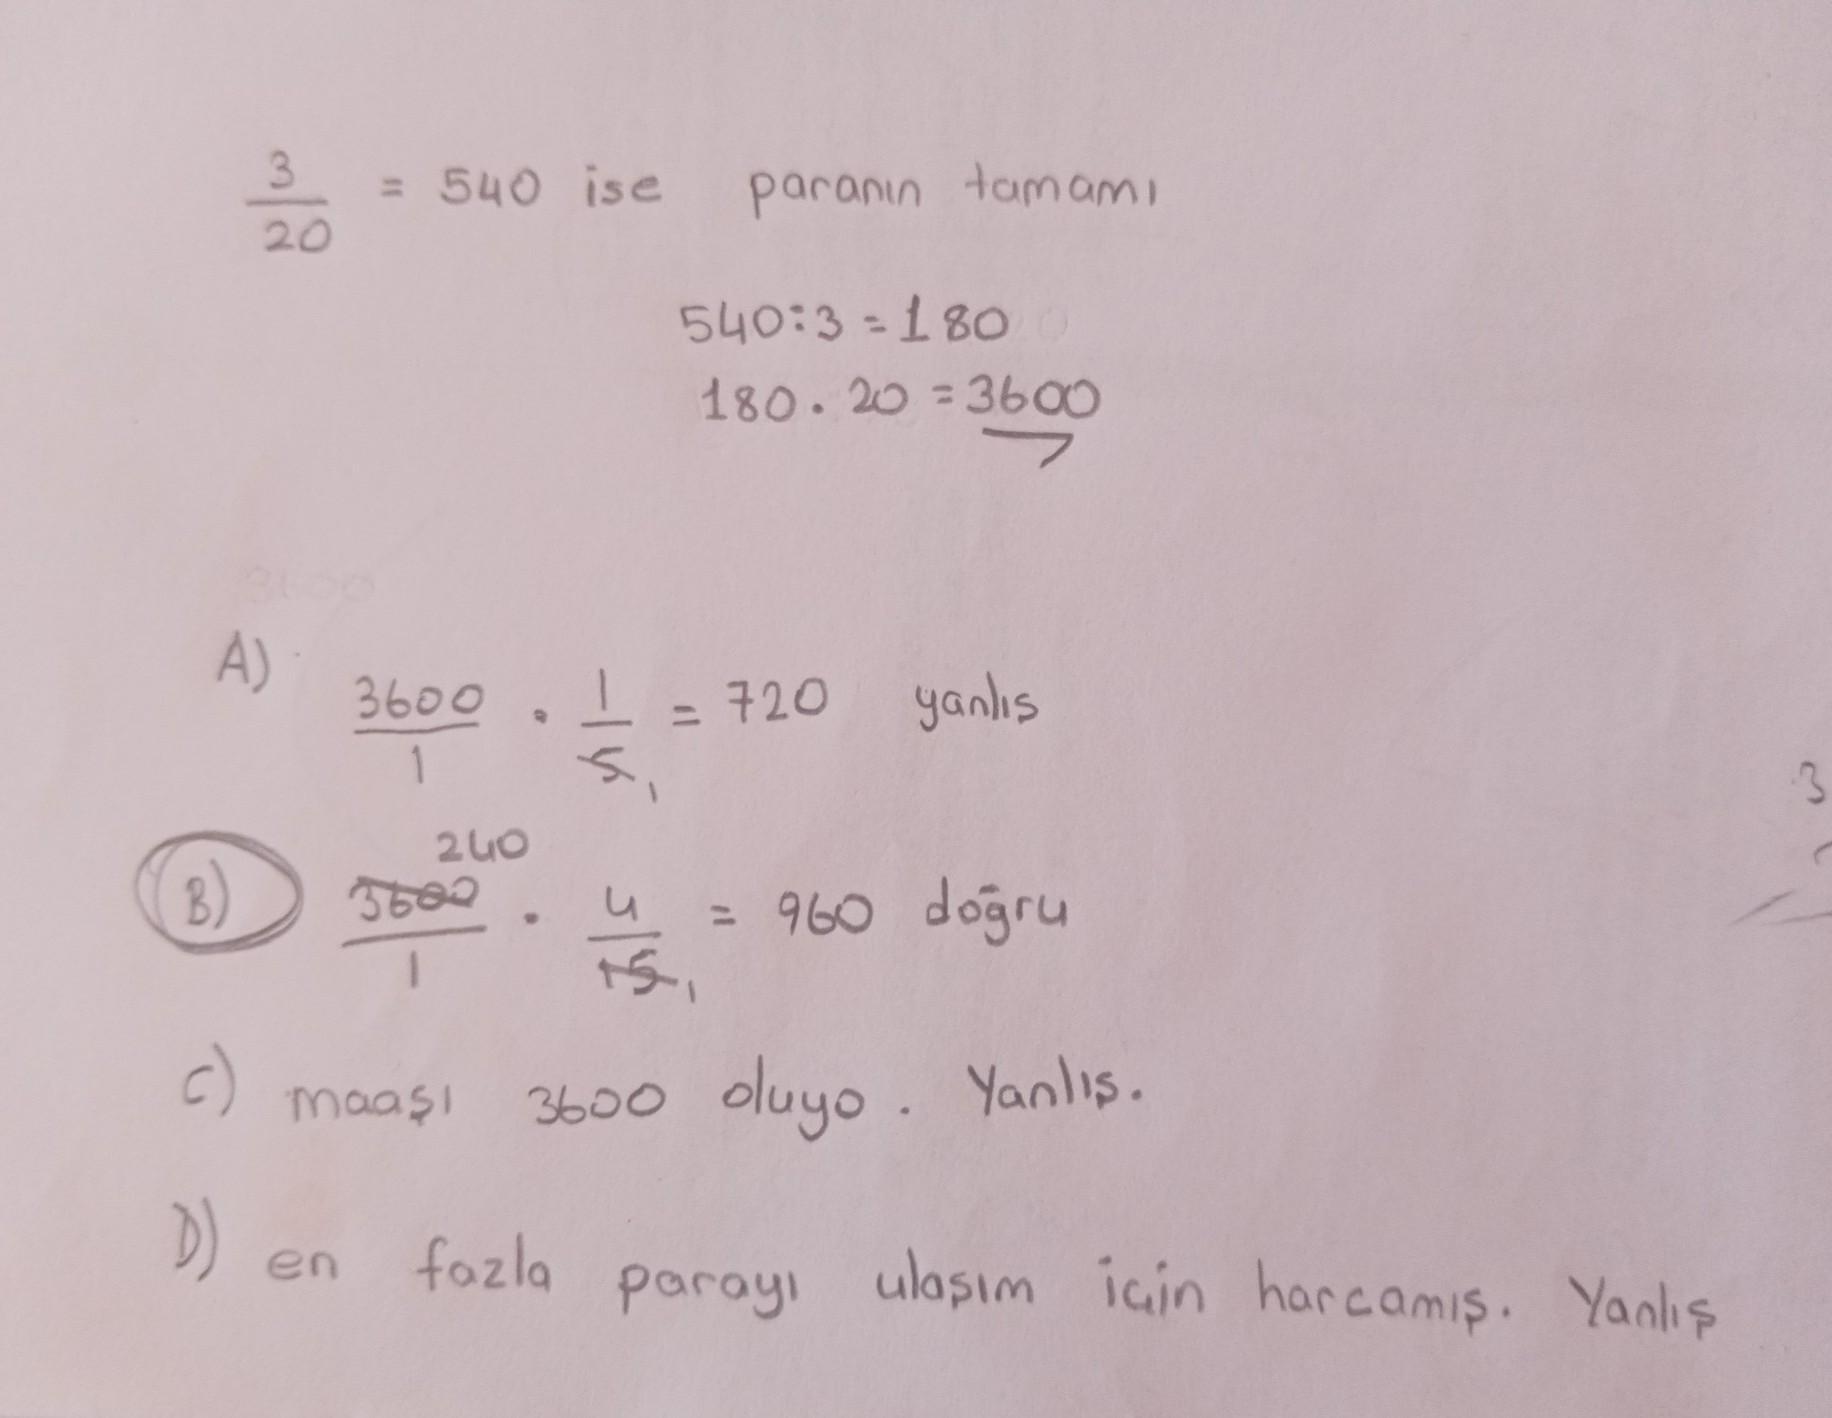 3/20 = 540 ise paranın tamamı
540:3=180
180.20=3600
A) 3600/1 . 1/5 1 = 720 yanlıs
240
B) 3600/1 . 4/15 1 = 960 doğru
3
C) maaşı 3600 oluyo. Yanlış.
D) en fazla parayı ulaşım için harcamış. Yanlış